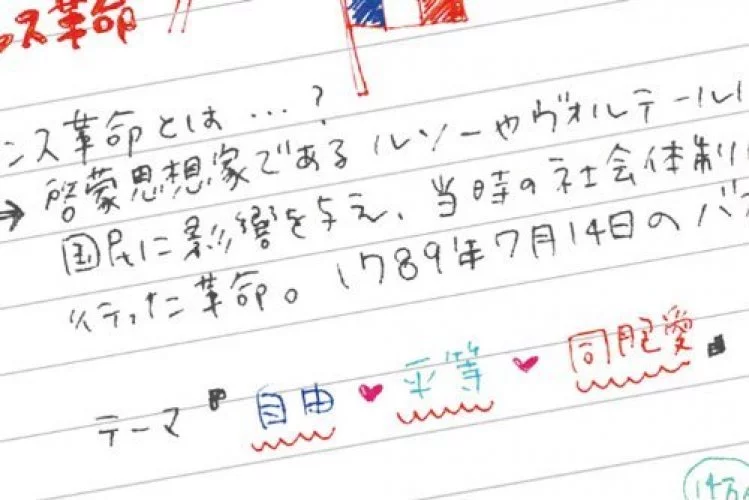 ンス革命
ンス革命とは…?
→ 啓蒙思想家である ルソーやヴォルテール
国民に影響を与え、当時の社会体制
行った革命。1789年7月14日のバ
テーマ 自由♥平等♥同胞愛